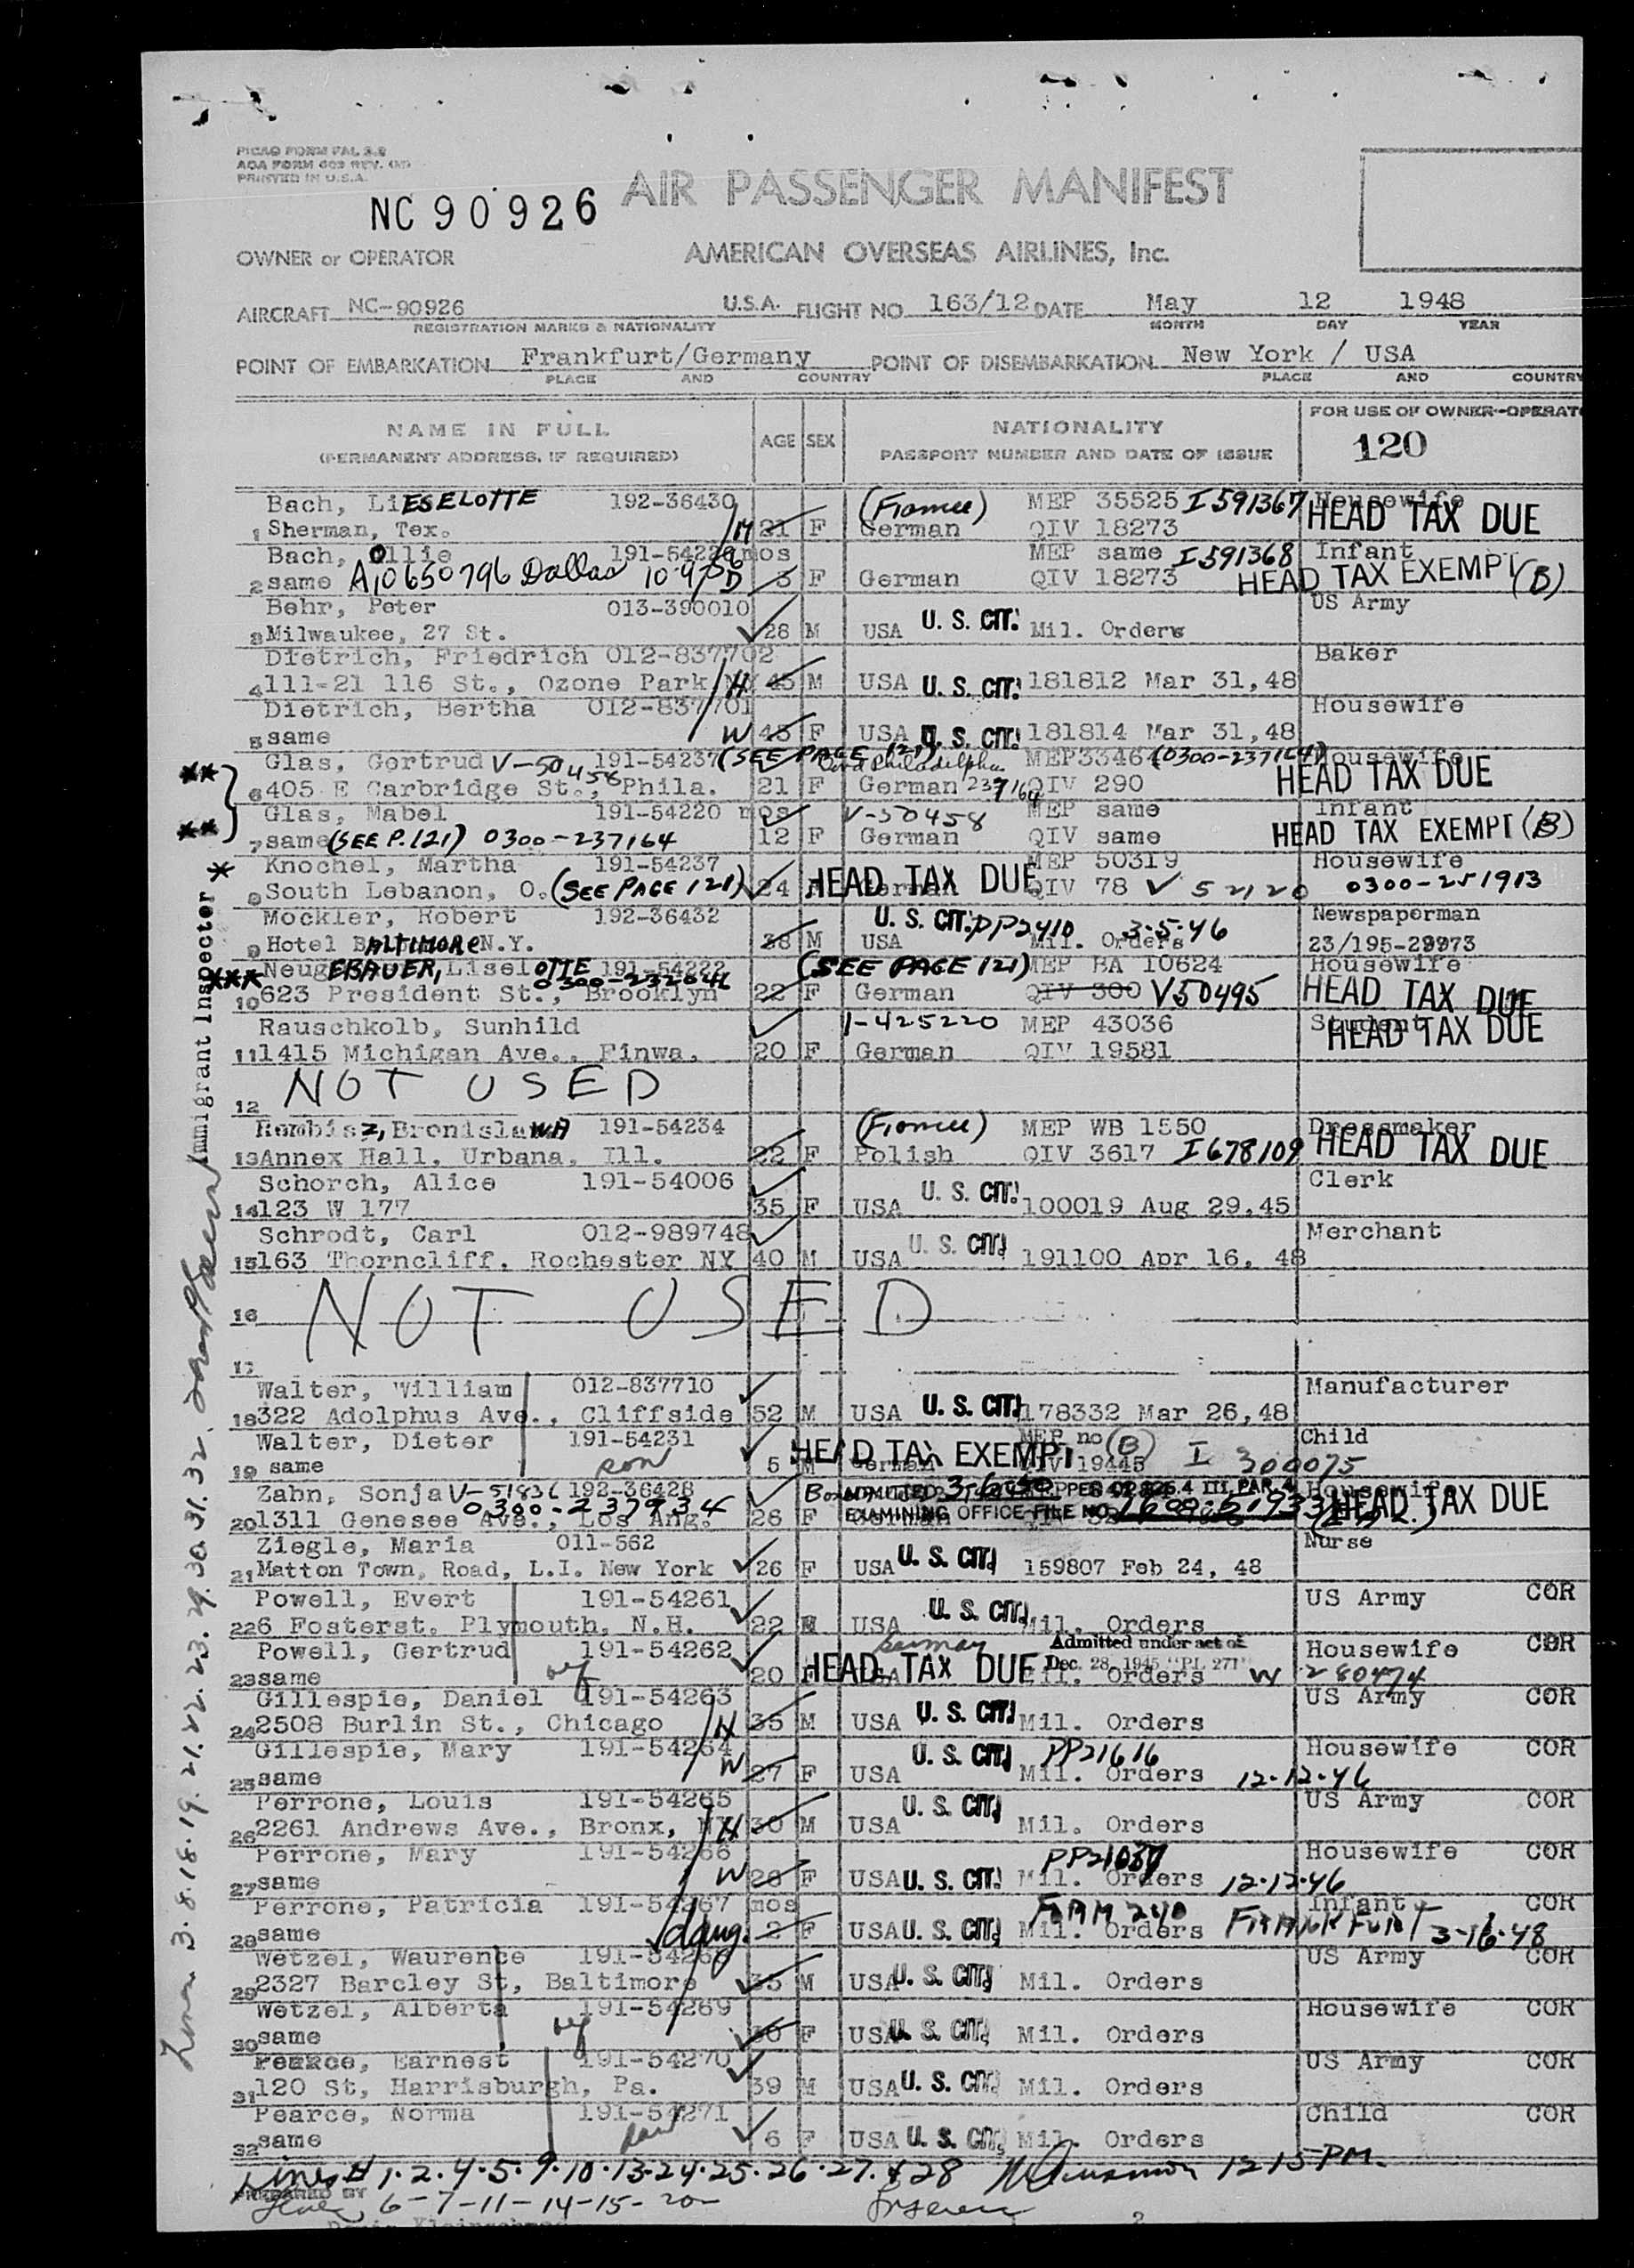 PICAO FORM FAL 2.2
AOA FORM 603 REV. (M)
PRINTED IN U.S.A.
NC 90926
AIR PASSENGER MANIFEST
OWNER or OPERATOR
AMERICAN OVERSEAS AIRLINES, Inc.
AIRCRAFT NC-90926 U.S.A. FLIGHT NO. 163/12 DATE May 12 1948
REGISTRATION MARKS & NATIONALITY MONTH DAY YEAR
POINT OF EMBARKATION Frankfurt/Germany POINT OF DISEMBARKATION New York / USA
PLACE AND COUNTRY PLACE AND COUNTRY
NAME IN FULL AGE SEX NATIONALITY FOR USE OF OWNER-OPERAT
(PERMANENT ADDRESS, IF REQUIRED) PASSPORT NUMBER AND DATE OF ISSUE 120
Bach, LiESELOTTE 192-36430 (Fiancee) MEP 35525 I591367 Housewife
1 Sherman, Tex. 21 F German QIV 18273 HEAD TAX DUE
Bach, Ollie mos MEP same I591368 Infant
2 same A10650796 Dallas 3 F German QIV 18273 HEAD TAX EXEMPT (B)
Behr, Peter 013-390010 US Army
3 Milwaukee, 27 St. 28 M USA U. S. CIT. Mil. Orders
Dietrich, Friedrich 012-837702 Baker
4 111-21 116 St., Ozone Park H 45 M USA U. S. CIT. 181812 Mar 31,48
Dietrich, Bertha 012-837701 Housewife
5 same W 45 F USA U. S. CIT. 181814 Mar 31,48
** Glas, Gertrud V-50458 191-54237 (SEE PAGE 121) MEP3346 (0300-237164) Housewife
6 405 E Carbridge St., Phila. 21 F German 237164 QIV 290 HEAD TAX DUE
** Glas, Mabel 191-54220 mos V-50458 MEP same Infant
7 same (SEE P. 121) 0300-237164 12 F German QIV same HEAD TAX EXEMPT (B)
* Knochel, Martha 191-54237 MEP 50319 Housewife
8 South Lebanon, O. (SEE PAGE 121) 24 HEAD TAX DUE QIV 78 V 52120 0300-251913
Mockler, Robert 192-36432 U. S. CIT. PP2410 3-5-46 Newspaperman
9 Hotel BALTIMORE N.Y. 38 M USA Mil. Orders 23/195-29973
*** NeugEBAUER, LiselOTTE 191-54222 (SEE PAGE 121) MEP BA 10624 Housewife
10 623 President St., Brooklyn 22 F German QIV 300 V50495 HEAD TAX DUE
Rauschkolb, Sunhild 1-425220 MEP 43036 Student HEAD TAX DUE
11 1415 Michigan Ave., Finwa. 20 F German QIV 19581
NOT USED
12
Rembisz, BronislaWA 191-54234 (Fiancee) MEP WB 1550 Dressmaker
13 Annex Hall, Urbana, Ill. 22 F Polish QIV 3617 I678109 HEAD TAX DUE
Schorch, Alice 191-54006 U. S. CIT. Clerk
14 123 W 177 35 F USA 100019 Aug 29,45
Schrodt, Carl 012-989748 U. S. CIT. Merchant
15 163 Thorncliff, Rochester NY 40 M USA 191100 Apr 16, 48
16 NOT USED
17
Walter, William 012-837710 Manufacturer
18 322 Adolphus Ave., Cliffside 52 M USA U. S. CIT. 178332 Mar 26,48
Walter, Dieter 191-54231 HEAD TAX EXEMPT MEP no (B) Child
19 same son 5 M German QIV 19445 I 300075
Zahn, Sonja V-51836 192-36428 ADMITTED Housewife
20 1311 Genesee Ave., Los Ang. 0300-237934 26 F EXAMINING OFFICE FILE NO. HEAD TAX DUE
Ziegle, Maria 011-562 Nurse
21 Matton Town, Road, L.I. New York 26 F USA U. S. CIT. 159807 Feb 24, 48
Powell, Evert 191-54261 US Army COR
22 6 Fosterst. Plymouth, N.H. 22 M USA U. S. CIT. Mil. Orders
Powell, Gertrud 191-54262 Germany Admitted under act of Housewife COR
23 same wf 20 F HEAD TAX DUE Dec. 28, 1945 "P.L. 271" Mil. Orders W 280474
Gillespie, Daniel 191-54263 US Army COR
24 2508 Burlin St., Chicago H 35 M USA U. S. CIT. Mil. Orders
Gillespie, Mary 191-54264 U. S. CIT. PP21616 Housewife COR
25 same W 27 F USA Mil. Orders 12-12-46
Perrone, Louis 191-54265 U. S. CIT. US Army COR
26 2261 Andrews Ave., Bronx, NY H 30 M USA Mil. Orders
Perrone, Mary 191-54266 Housewife COR
27 same W 26 F USA U. S. CIT. Mil. Orders 12-12-46
Perrone, Patricia 191-54267 mos FORM 240 Infant COR
28 same daug. 2 F USA U. S. CIT. Mil. Orders FRANKFURT 3-16-48
Wetzel, Waurence 191-54268 US Army COR
29 2327 Barcley St, Baltimore 35 M USA U. S. CIT. Mil. Orders
Wetzel, Alberta 191-54269 Housewife COR
30 same wf 30 F USA U. S. CIT. Mil. Orders
Pearce, Earnest 191-54270 US Army COR
31 120 St, Harrisburgh, Pa. 39 M USA U. S. CIT. Mil. Orders
Pearce, Norma 191-54271 Child COR
32 same 6 F USA U. S. CIT. Mil. Orders
Lines # 1-2-4-5-9-10-13-24-25-26-27-&28 1215 PM.
PREPARED BY
6-7-11-14-15-20
2
Immigrant Inspector
Lines 3.8.18.19.21.22.23.29.30.31.32.